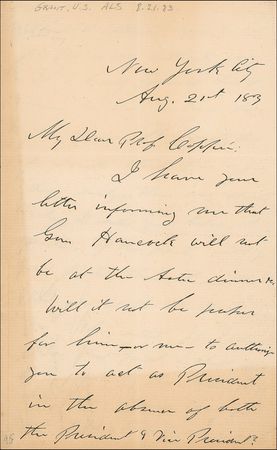 GRANT, U.S. ALS 8.21.83
New York City
Aug. 21st 183
My Dear Prof. Coppée:
I have your
letter informing me that
Gen. Hancock will not
be at the Aztec dinner.
Will it not be proper
for him—or me—to authorize
you to act as President
in the absence of both
the President & Vice President?